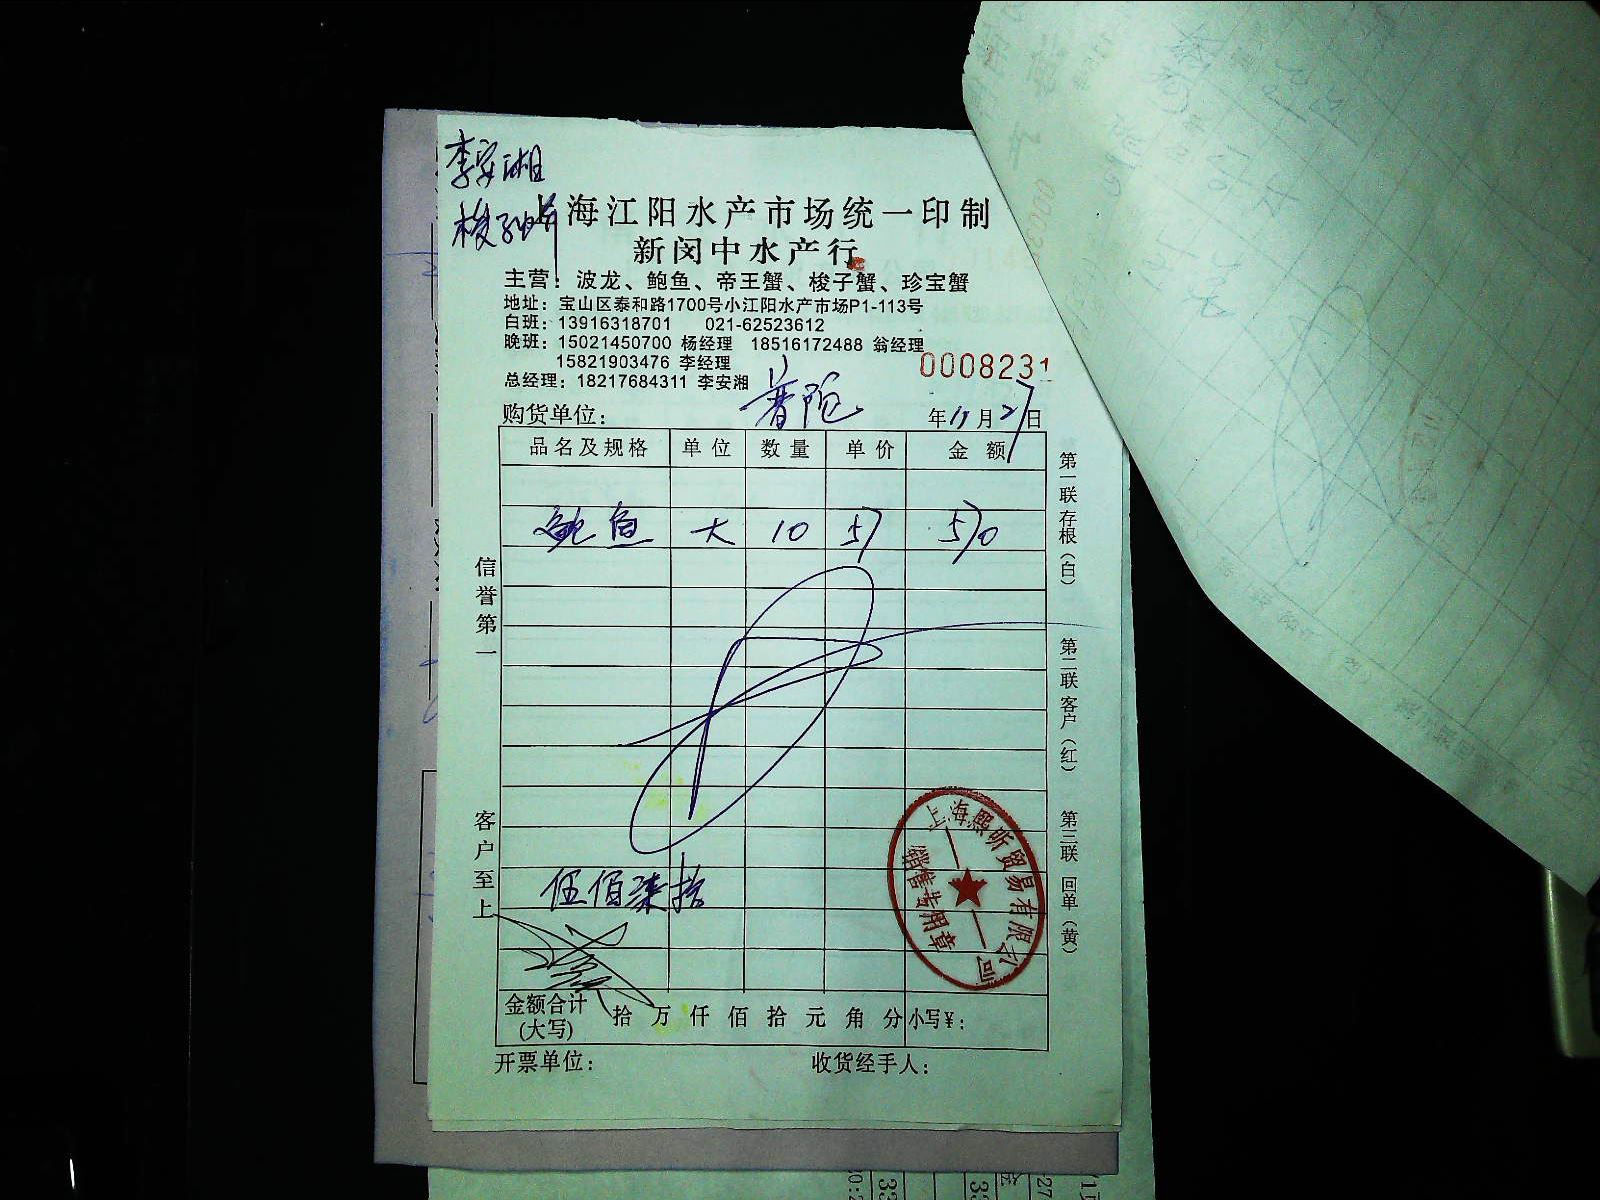 李安湘
梭子蟹
上海江阳水产市场统一印制
新闵中水产行
主营：波龙、鲍鱼、帝王蟹、梭子蟹、珍宝蟹
地址：宝山区泰和路1700号小江阳水产市场P1-113号
白班：13916318701 021-62523612
晚班：15021450700 杨经理 18516172488 翁经理
15821903476 李经理
0008231
总经理：18217684311 李安湘
购货单位：普陀 年11月27日
品名及规格 单位 数量 单价 金额
鲍鱼 大 10 57 570
伍佰柒拾
金额合计(大写) 拾 万 仟 佰 拾 元 角 分 小写¥：
开票单位： 收货经手人：
信誉第一
客户至上
第一联 存根（白）
第二联 客户（红）
第三联 回单（黄）
上海熙昕贸易有限公司
销售专用章